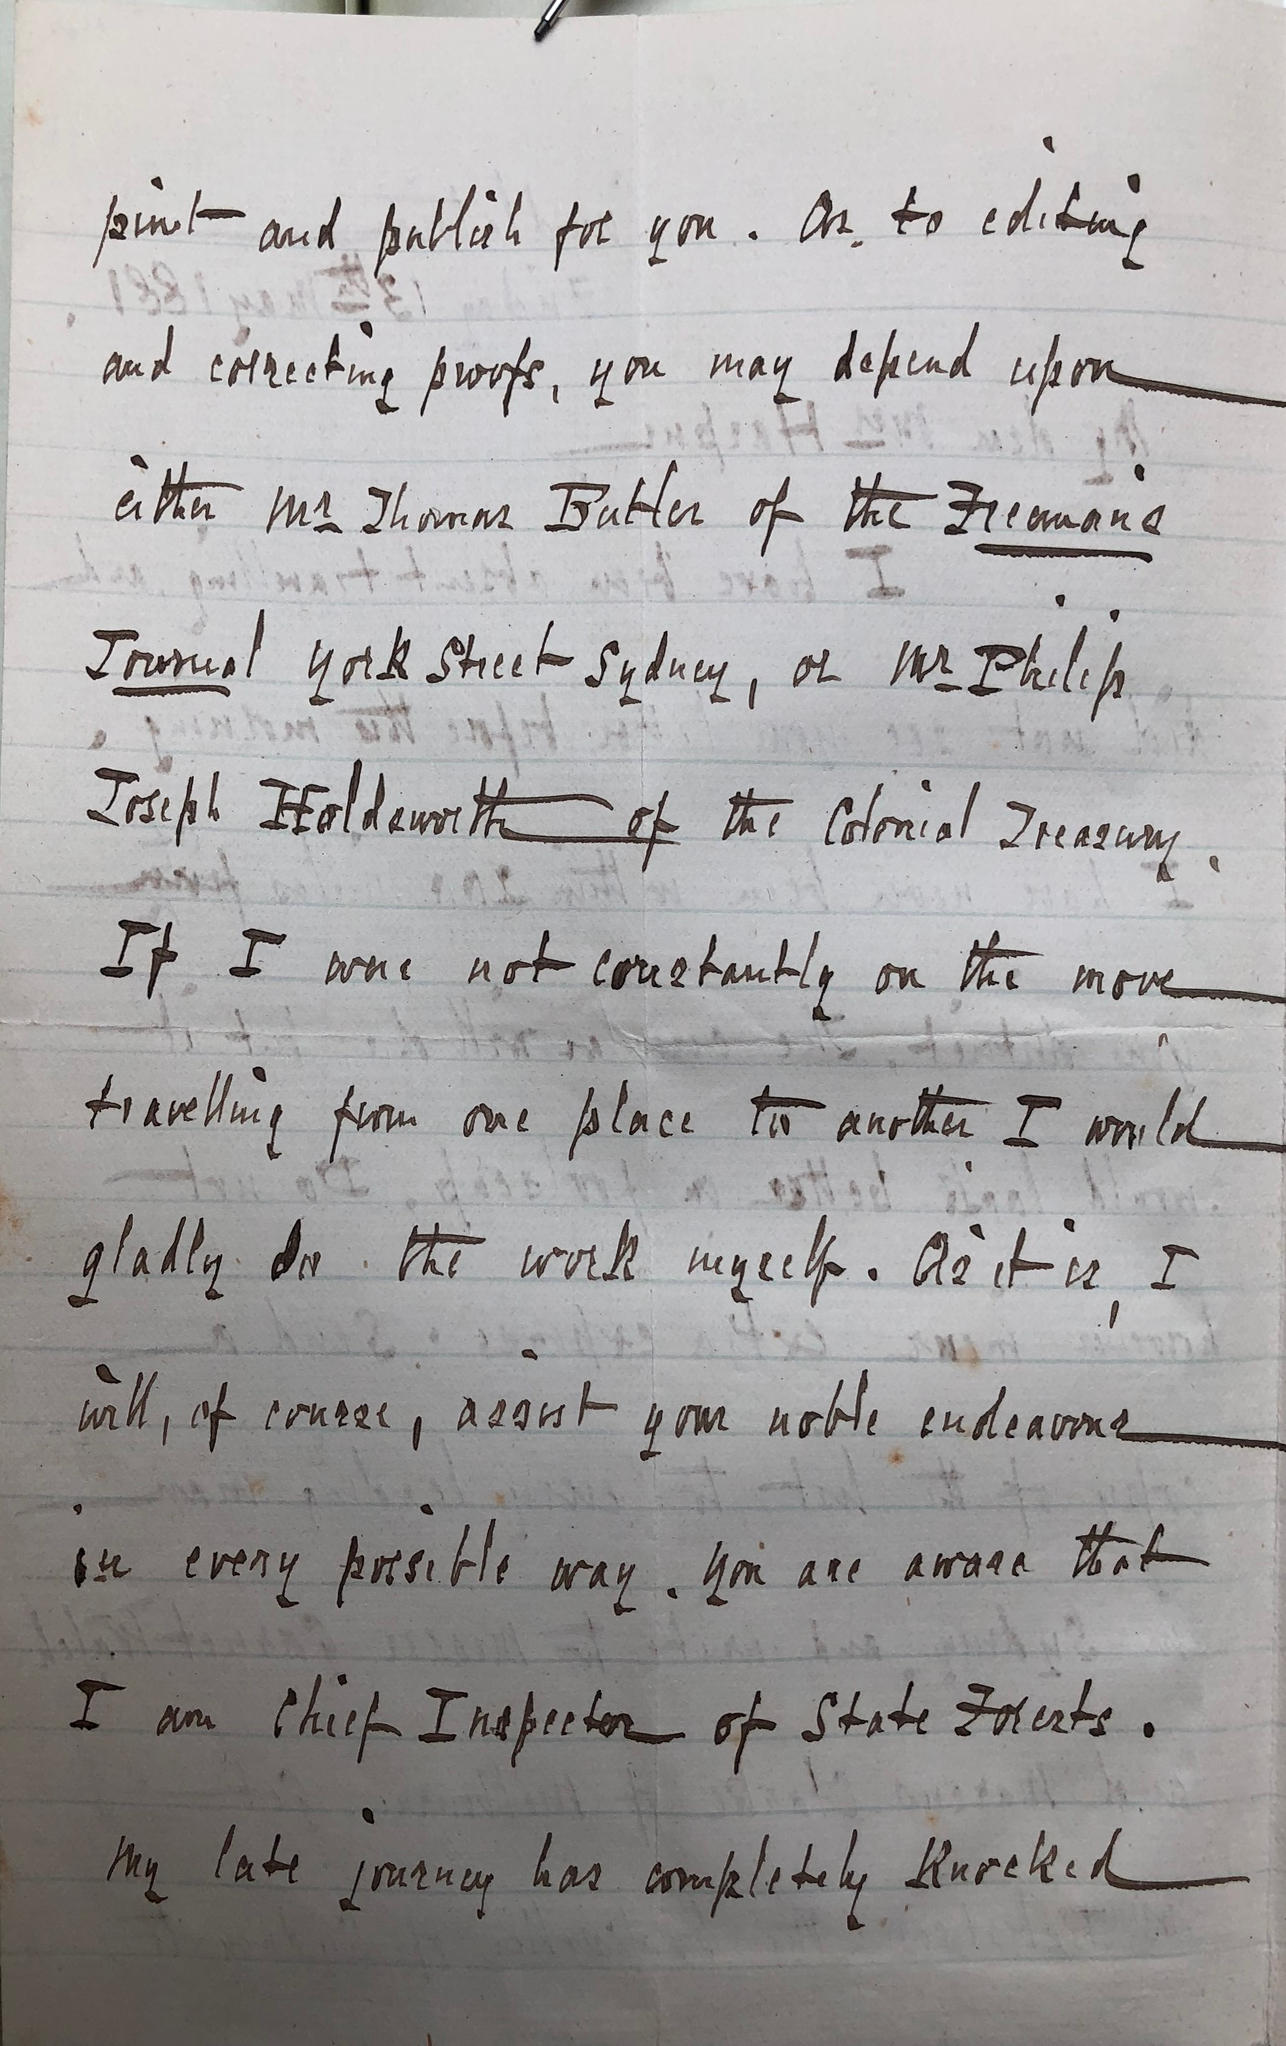 print and publish for you. As to editing
and correcting proofs, you may depend upon
either Mr Thomas Butler of the Freemans
Journal York Street Sydney, or Mr Philip
Joseph Holdsworth of the Colonial Treasury.
If I were not constantly on the move
travelling from one place to another I would
gladly do the work myself. As it is, I
will, of course, assist your noble endeavours
in every possible way. You are aware that
I am Chief Inspector of State Forests.
My late journey has completely knocked